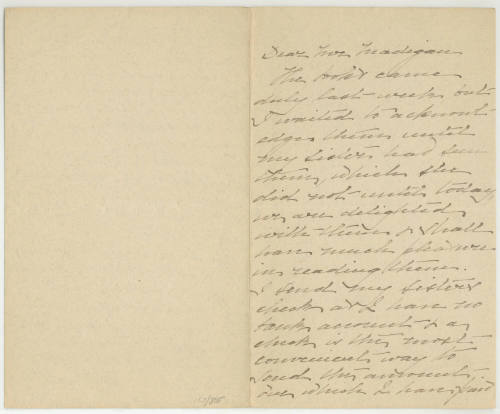 Dear Mr Madigan
The books came
duly last week but
I waited to acknowl
edge them until
my sister had seen
them, which she
did not until today,
we are delighted
with them & shall
have much pleasure
in reading them.
I send my sister's
check as I have no
bank account & a
check is the most
convenient way to
send the amount,
one which I have paid